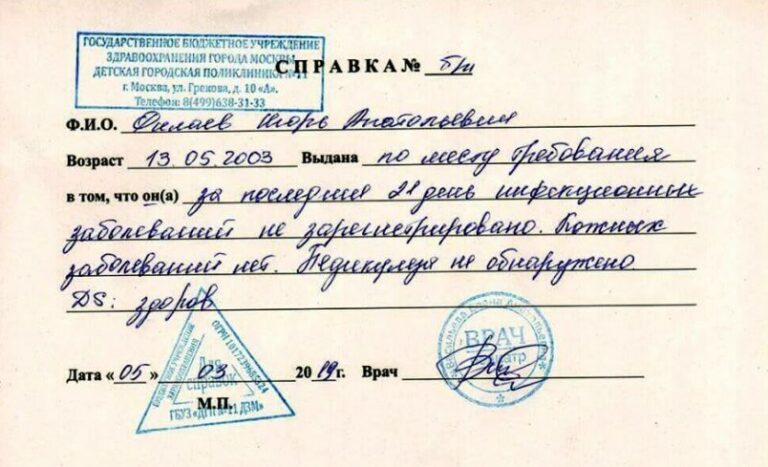 ГОСУДАРСТВЕННОЕ БЮДЖЕТНОЕ УЧРЕЖДЕНИЕ
ЗДРАВООХРАНЕНИЯ ГОРОДА МОСКВЫ
ДЕТСКАЯ ГОРОДСКАЯ ПОЛИКЛИНИКА №11
г. Москва, ул. Грекова, д. 10 «А».
Телефон: 8(499)638-31-33
СПРАВКА № б/н
Ф.И.О. Игорь Анатольевич
Возраст 13.05.2003 Выдана по месту требования
в том, что он(а) за последний 21 день инфекционных
заболеваний не зарегистрировано. Кожных
заболеваний нет. Педикулеза не обнаружено.
DS: здоров
Дата «05» 03 2019г. Врач
М.П.
Для
справок
ГБУЗ «ДГП № 11 ДЗМ»
ВРАЧ